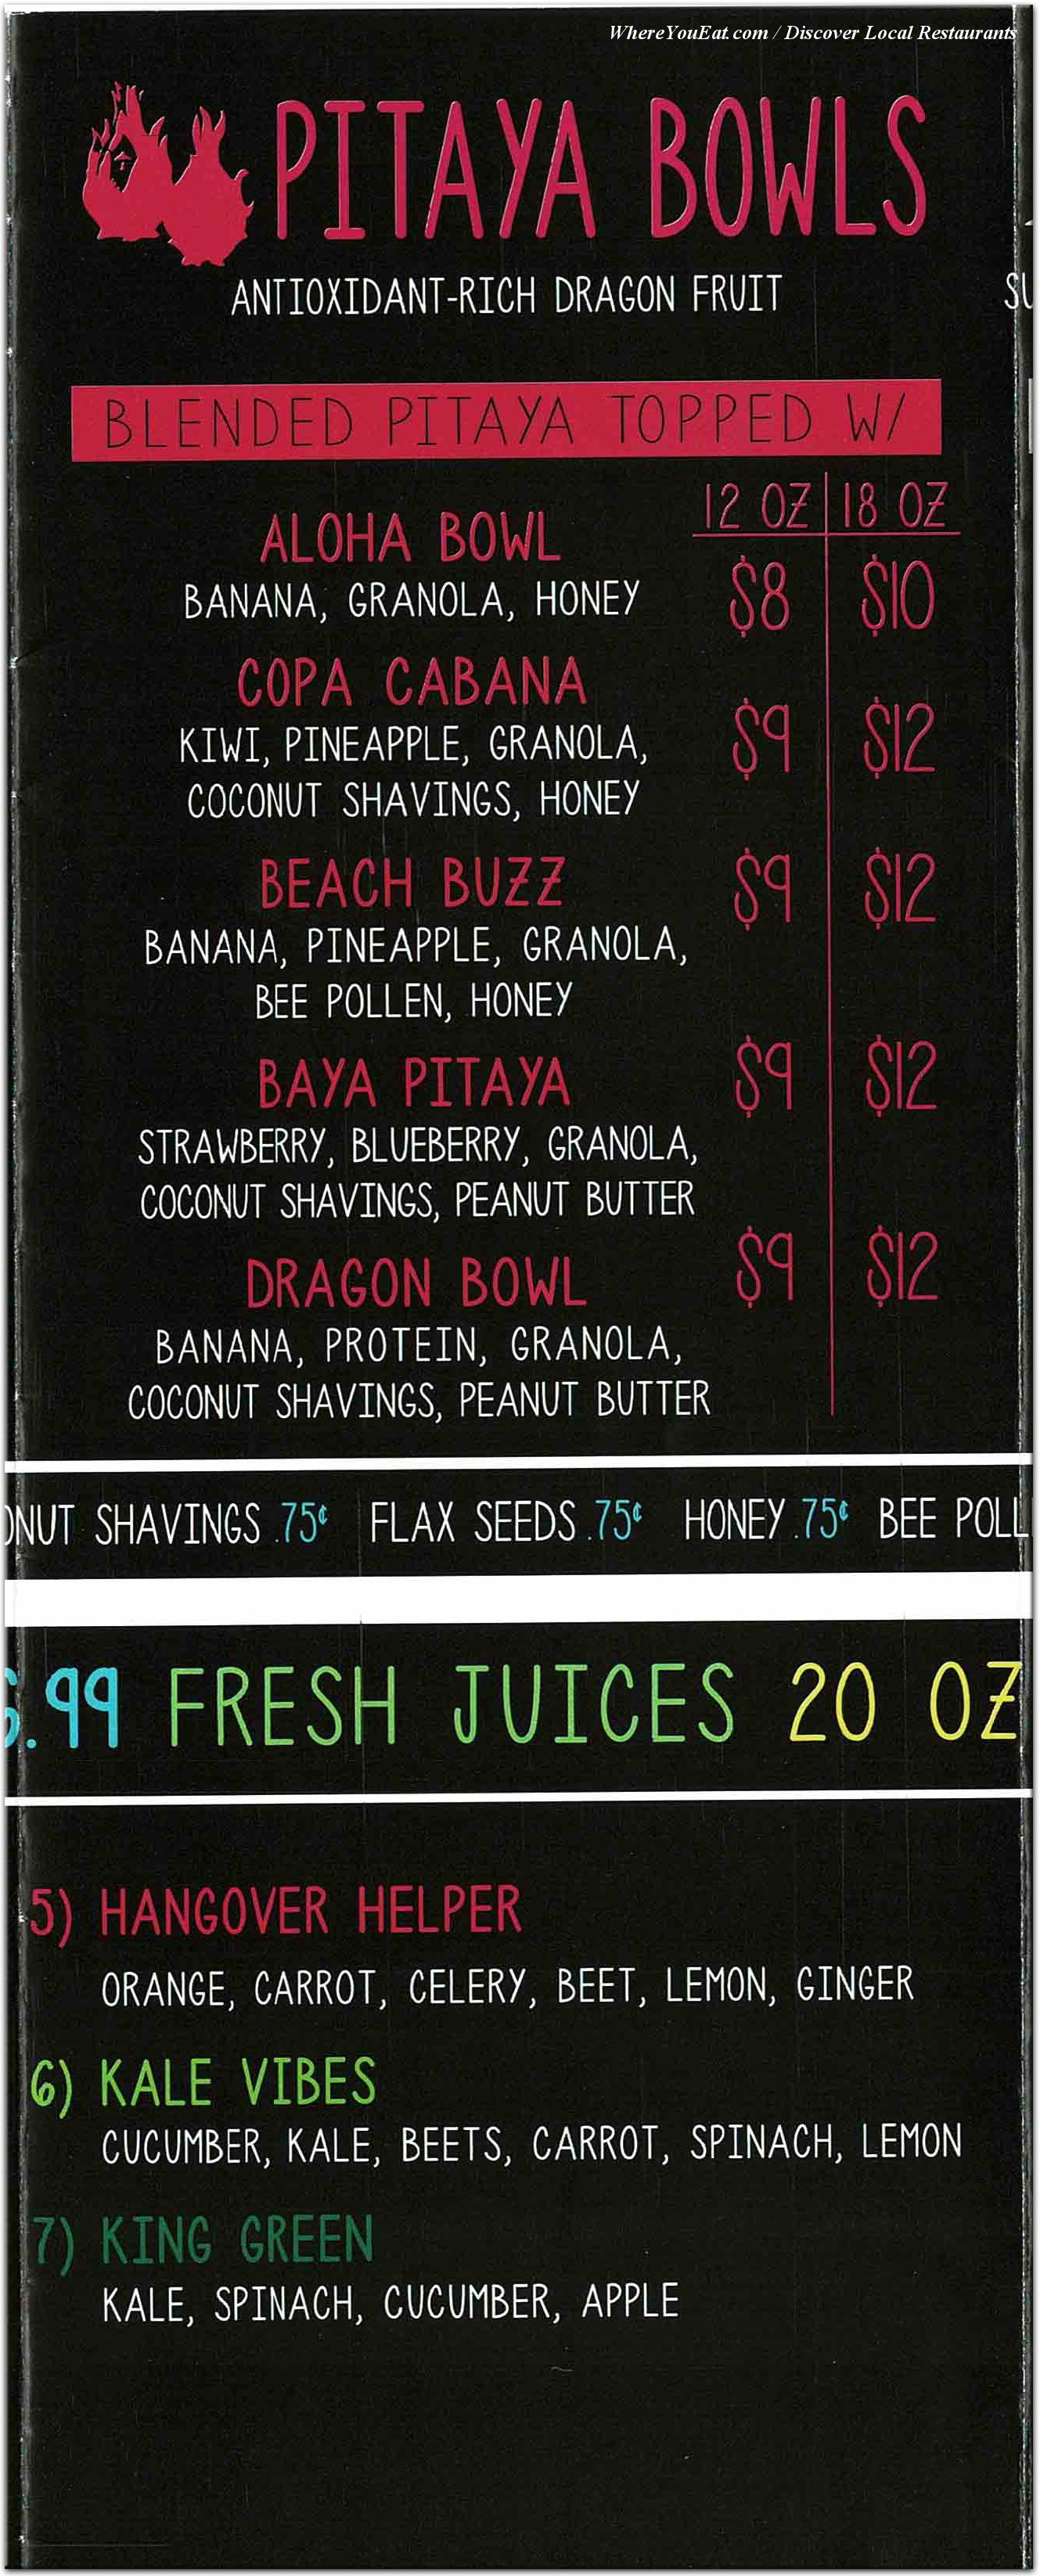 WhereYouEat.com / Discover Local Restaurants
PITAYA BOWLS
ANTIOXIDANT-RICH DRAGON FRUIT
BLENDED PITAYA TOPPED W/
12 OZ 18 OZ
ALOHA BOWL
BANANA, GRANOLA, HONEY $8 $10
COPA CABANA
KIWI, PINEAPPLE, GRANOLA, $9 $12
COCONUT SHAVINGS, HONEY
BEACH BUZZ $9 $12
BANANA, PINEAPPLE, GRANOLA,
BEE POLLEN, HONEY
BAYA PITAYA $9 $12
STRAWBERRY, BLUEBERRY, GRANOLA,
COCONUT SHAVINGS, PEANUT BUTTER
DRAGON BOWL $9 $12
BANANA, PROTEIN, GRANOLA,
COCONUT SHAVINGS, PEANUT BUTTER
SHAVINGS .75¢ FLAX SEEDS .75¢ HONEY .75¢ BEE
.99 FRESH JUICES 20 OZ
5) HANGOVER HELPER
ORANGE, CARROT, CELERY, BEET, LEMON, GINGER
6) KALE VIBES
CUCUMBER, KALE, BEETS, CARROT, SPINACH, LEMON
7) KING GREEN
KALE, SPINACH, CUCUMBER, APPLE